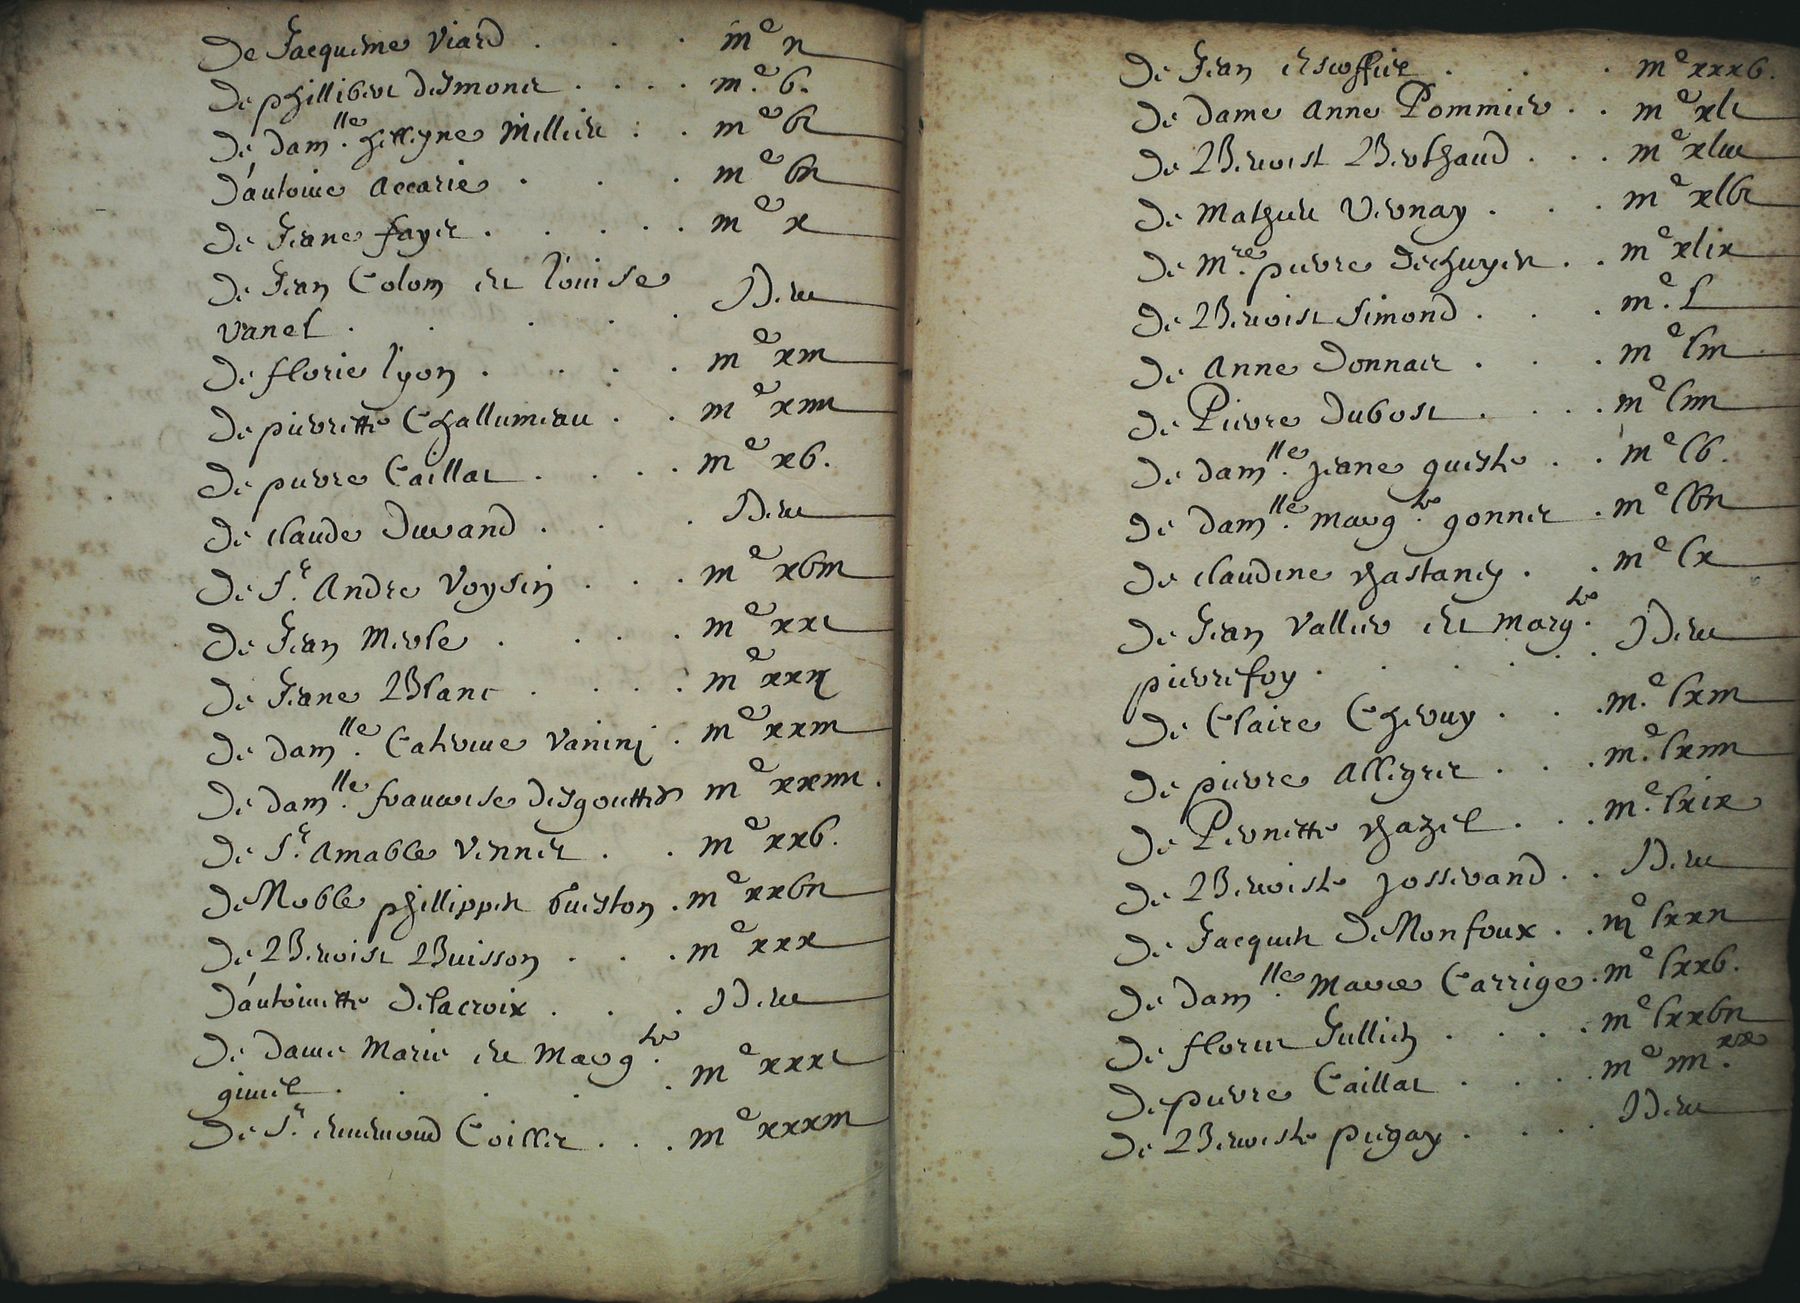 De Jacqueme Viard . . . m^e ii
De phillibert desmonet . . . . m.^e v.
De dam^lle. hellyne Millieu . . m^e vi
D'antoine accarie . . . m^e vii
De Jeane fayet . . . . . m^e x
De Jean Colom et louise
vanel . . . . . Idem
De florie lyon . . . . m^e xiii
De pierrette Challumeau . . m^e xiiii
De pierre Caillat . . . . m^e xv.
De claude Durand . . . Idem
De S^r. Andre Voysin . . . m^e xviii
De Jean Merle . . . . m^e xxi
De Jeane Blanc . . . . m^e xxii
De dam^lle. Caterine Vanini . m^e xxiii
De dam^lle. francoise desgouttes m^e xxiiii.
De S^r. Amable Vennet . . m^e xxv.
De Noble phillippes Gueston . m^e xxvii
De Benoist Buisson . . . m^e xxx
D'antoinette Delacroix . . . Idem
De dame Marie et Marg^te.
gimel . . . . m^e xxxi
De S^r. Coillet . . . m^e xxxiii
De Jean escoffier . . . m^e xxxv.
De dame Anne Pommier . . m^e xli
De Benoist Berthaud . . . m^e xliii
De Mathieu Vernay . . . m^e xlvi
De M^re. pierre Dechuyes . . m^e xlix
De Benoist Simond . . . m^e. l
De Anne Donnait . . . m^e liii
De Pierre Dubost . . . . m^e liiii
De dam^lle. Jeane queste . . m^e lv.
De dam^lle. marg^te. gonnet . m^e lvii
De claudine chastang . . m^e lx
De Jean Vallier et Marg^te.
pierrefoy . . . . . Idem
De Claire Chevuy . . . m.^e lxiii
De pierre Allegret . . . m.^e lxiiii
De Pernette chazel . . . m.^e lxix
De Benoiste Josserand . . Idem
De Jacques DeMonfoux . . m^e lxxii
De dam^lle. Marie Carrige . m^e lxxv.
De florie Jullien . . . . m^e lxxvii
De pierre Caillat . . . . m^e iiii.^xx
De Benoiste pugay . . . . Idem